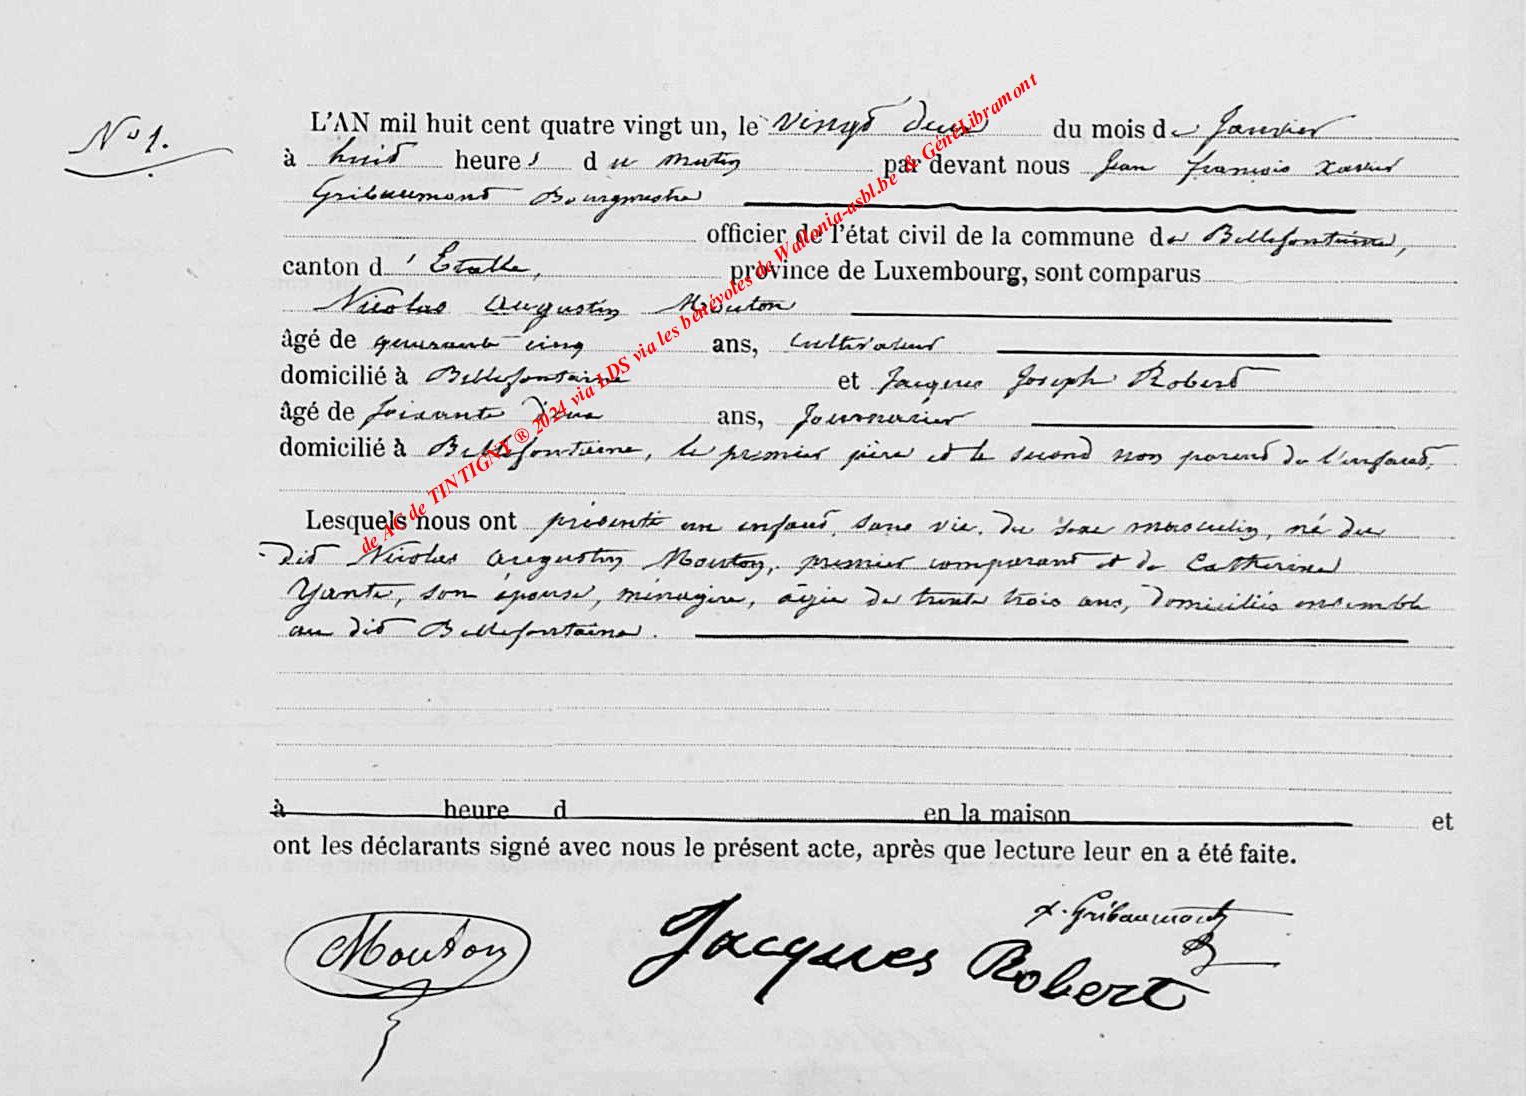 N° 1.
L'AN mil huit cent quatre vingt un, le vingt deux du mois de Janvier
à huit heures du matin par devant nous Jean françois Xavier
Gribaumont Bourgmestre
officier de l'état civil de la commune de Bellefontaine,
canton d'Etalle, province de Luxembourg, sont comparus
Nicolas Augustin Mouton
âgé de quarante cinq ans, cultivateur
domicilié à Bellefontaine et Jacques Joseph Robert
âgé de soixante deux ans, Journalier
domicilié à Bellefontaine, le premier père et le second non parent de l'enfant,
Lesquels nous ont présenté un enfant sans vie du sexe masculin, né du
dit Nicolas Augustin Mouton, premier comparant et de Catherine
Yante, son épouse, ménagère, âgée de trente trois ans, domiciliés ensemble
au dit Bellefontaine.
à heure d en la maison et
ont les déclarants signé avec nous le présent acte, après que lecture leur en a été faite.
X. Gribaumont
Mouton Jacques Robert
de AC de TINTIGNY ® 2024 via LDS via les bénévoles de Wallonia-asbl.be & GénéLibramont